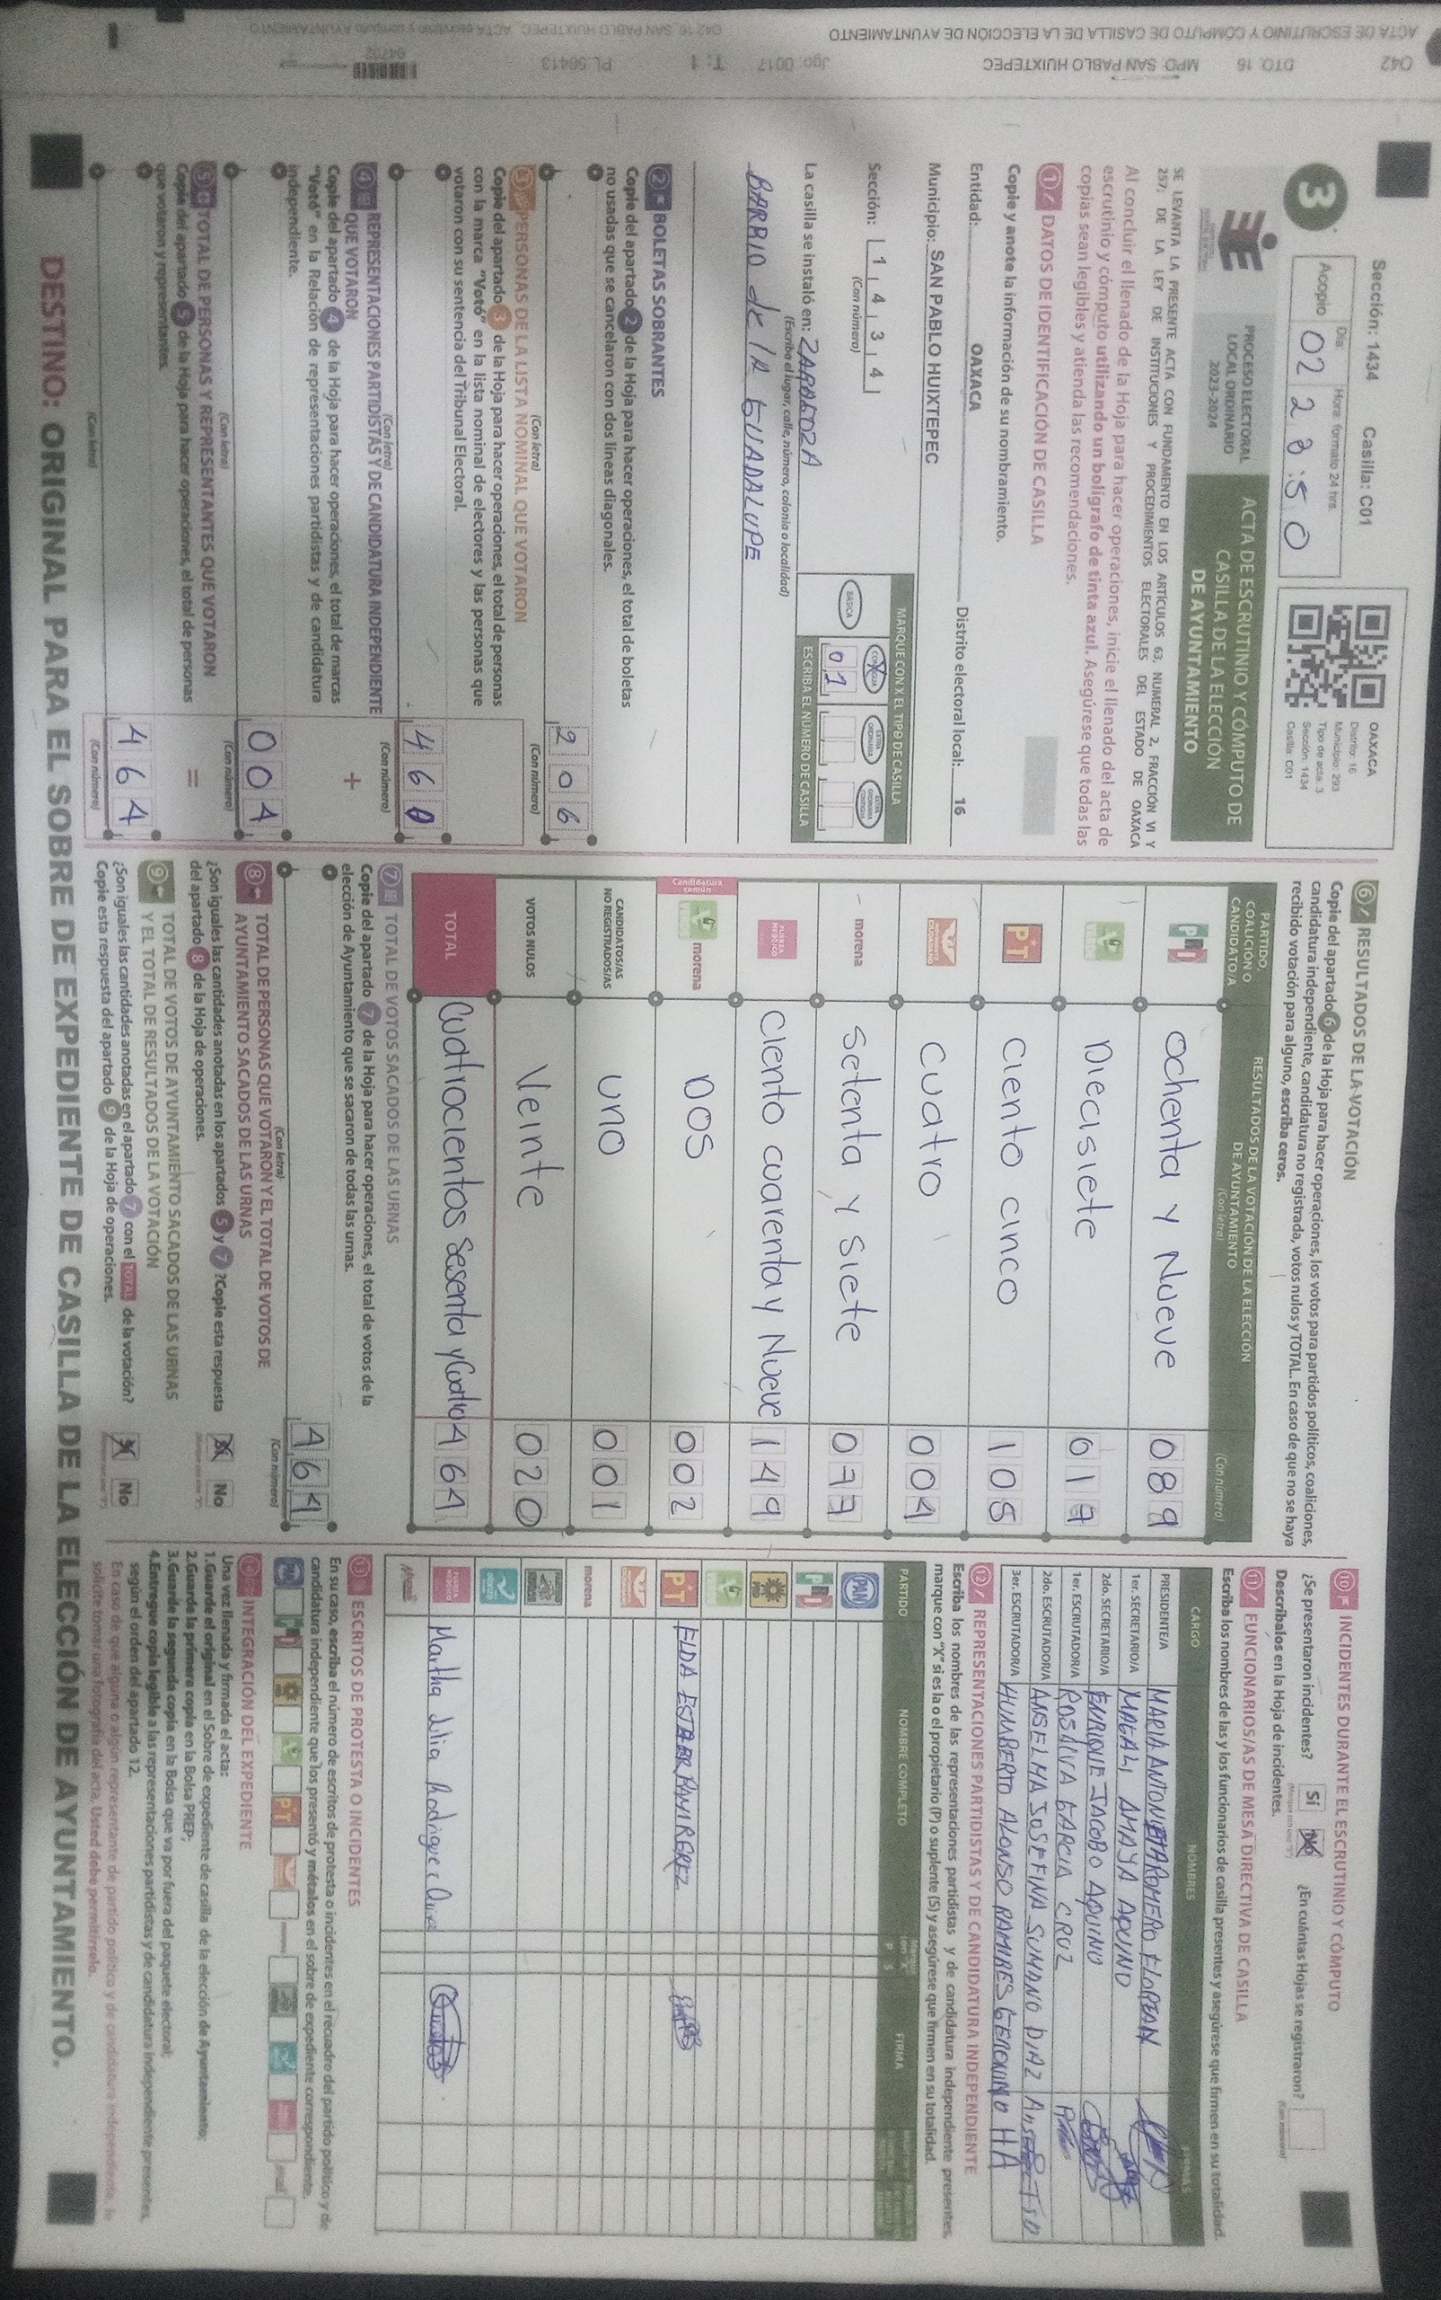 042 DTO. 16 MPO. SAN PABLO HUIXTEPEC Jgo: 0017 T: 1 PL 56413
ACTA DE ESCRUTINIO Y CÓMPUTO DE CASILLA DE LA ELECCIÓN DE AYUNTAMIENTO
Sección: 1434 Casilla: C01
3
Día Hora: formato 24 hrs.
Acopio 02 23:50
OAXACA
Distrito: 16
Municipio: 293
Tipo de acta: 3
Sección: 1434
Casilla: C01
PROCESO ELECTORAL
LOCAL ORDINARIO
2023-2024
ACTA DE ESCRUTINIO Y CÓMPUTO DE
CASILLA DE LA ELECCIÓN
DE AYUNTAMIENTO
SE LEVANTA LA PRESENTE ACTA CON FUNDAMENTO EN LOS ARTÍCULOS 63, NUMERAL 2, FRACCIÓN VI Y
257; DE LA LEY DE INSTITUCIONES Y PROCEDIMIENTOS ELECTORALES DEL ESTADO DE OAXACA
Al concluir el llenado de la Hoja para hacer operaciones, inicie el llenado del acta de
escrutinio y cómputo utilizando un bolígrafo de tinta azul. Asegúrese que todas las
copias sean legibles y atienda las recomendaciones.
1 DATOS DE IDENTIFICACIÓN DE CASILLA
Copie y anote la información de su nombramiento.
Entidad: OAXACA Distrito electoral local: 16
Municipio: SAN PABLO HUIXTEPEC
Sección: 1 4 3 4
(Con número)
MARQUE CON X EL TIPO DE CASILLA
BÁSICA
0 1
ESCRIBA EL NÚMERO DE CASILLA
La casilla se instaló en: ZARAGOZA
(Escriba el lugar, calle, número, colonia o localidad)
BARRIO de la GUADALUPE
2 BOLETAS SOBRANTES
Copie del apartado 2 de la Hoja para hacer operaciones, el total de boletas
no usadas que se cancelaron con dos líneas diagonales.
206
(Con letra) (Con número)
3 PERSONAS DE LA LISTA NOMINAL QUE VOTARON
Copie del apartado 3 de la Hoja para hacer operaciones, el total de personas
con la marca "Votó" en la lista nominal de electores y las personas que
votaron con su sentencia del Tribunal Electoral.
460
(Con letra) (Con número)
4 REPRESENTACIONES PARTIDISTAS Y DE CANDIDATURA INDEPENDIENTE
QUE VOTARON
+
Copie del apartado 4 de la Hoja para hacer operaciones, el total de marcas
"Votó" en la Relación de representaciones partidistas y de candidatura
independiente.
004
(Con letra) (Con número)
5 TOTAL DE PERSONAS Y REPRESENTANTES QUE VOTARON
=
Copie del apartado 5 de la Hoja para hacer operaciones, el total de personas
que votaron y representantes.
464
(Con letra) (Con número)
6 RESULTADOS DE LA VOTACIÓN
Copie del apartado 6 de la Hoja para hacer operaciones, los votos para partidos políticos, coaliciones,
candidatura independiente, candidatura no registrada, votos nulos y TOTAL. En caso de que no se haya
recibido votación para alguno, escriba ceros.
PARTIDO, COALICIÓN O CANDIDATO/A
RESULTADOS DE LA VOTACIÓN DE LA ELECCIÓN DE AYUNTAMIENTO
(Con letra) (Con número)
PRI ochenta y Nueve 089
Diecisiete 017
PT Ciento cinco 105
Cuatro 004
morena Setenta y Siete 077
FUERZA MÉXICO Ciento cuarenta y Nueve 149
Candidatura común morena Dos 002
CANDIDATOS/AS NO REGISTRADOS/AS uno 001
VOTOS NULOS Veinte 020
TOTAL Cuatrocientos Sesenta y Cuatro 464
7 TOTAL DE VOTOS SACADOS DE LAS URNAS
Copie del apartado 7 de la Hoja para hacer operaciones, el total de votos de la
elección de Ayuntamiento que se sacaron de todas las urnas.
464
(Con letra) (Con número)
8 TOTAL DE PERSONAS QUE VOTARON Y EL TOTAL DE VOTOS DE
AYUNTAMIENTO SACADOS DE LAS URNAS
¿Son iguales las cantidades anotadas en los apartados 5 y 7 ? Copie esta respuesta
del apartado 8 de la Hoja de operaciones.
Sí No
9 TOTAL DE VOTOS DE AYUNTAMIENTO SACADOS DE LAS URNAS
Y EL TOTAL DE RESULTADOS DE LA VOTACIÓN
¿Son iguales las cantidades anotadas en el apartado 7 con el TOTAL de la votación?
Copie esta respuesta del apartado 9 de la Hoja de operaciones.
Sí No
10 INCIDENTES DURANTE EL ESCRUTINIO Y CÓMPUTO
¿Se presentaron incidentes? Sí No ¿En cuántas Hojas se registraron?
Descríbalos en la Hoja de incidentes.
11 FUNCIONARIOS/AS DE MESA DIRECTIVA DE CASILLA
Escriba los nombres de las y los funcionarios de casilla presentes y asegúrese que firmen en su totalidad.
CARGO NOMBRES FIRMAS
PRESIDENTE/A MARIA ANTONIETA ROMERO FLOREAN
1er. SECRETARIO/A MAGALI AMAYA AQUINO
2do. SECRETARIO/A ENRIQUE JACOBO AQUINO
1er. ESCRUTADOR/A ROSALVA GARCIA CRUZ
2do. ESCRUTADOR/A ANSELMA JOSEFINA SUMANO DIAZ
3er. ESCRUTADOR/A HUMBERTO ALONSO RAMIRES GERONIMO HA
12 REPRESENTACIONES PARTIDISTAS Y DE CANDIDATURA INDEPENDIENTE
Escriba los nombres de las representaciones partidistas y de candidatura independiente presentes,
marque con "X" si es la o el propietario (P) o suplente (S) y asegúrese que firmen en su totalidad.
PARTIDO NOMBRE COMPLETO P S FIRMA
PAN
PRI
PT ELDA ESTHER RAMIREZ
morena
FUERZA MÉXICO Martha Lilia Rodriguez
13 ESCRITOS DE PROTESTA O INCIDENTES
En su caso, escriba el número de escritos de protesta o incidentes en el recuadro del partido político y de
candidatura independiente que los presentó y métalos en el sobre de expediente correspondiente.
14 INTEGRACIÓN DEL EXPEDIENTE
Una vez llenada y firmada el acta:
1.Guarde el original en el Sobre de expediente de casilla de la elección de Ayuntamiento;
2.Guarde la primera copia en la Bolsa PREP;
3.Guarde la segunda copia en la Bolsa que va por fuera del paquete electoral;
4.Entregue copia legible a las representaciones partidistas y de candidatura independiente presentes,
según el orden del apartado 12.
En caso de que alguna o algún representante de partido político y de candidatura independiente, le
solicite tomar una fotografía del acta, Usted debe permitírselo.
DESTINO: ORIGINAL PARA EL SOBRE DE EXPEDIENTE DE CASILLA DE LA ELECCIÓN DE AYUNTAMIENTO.